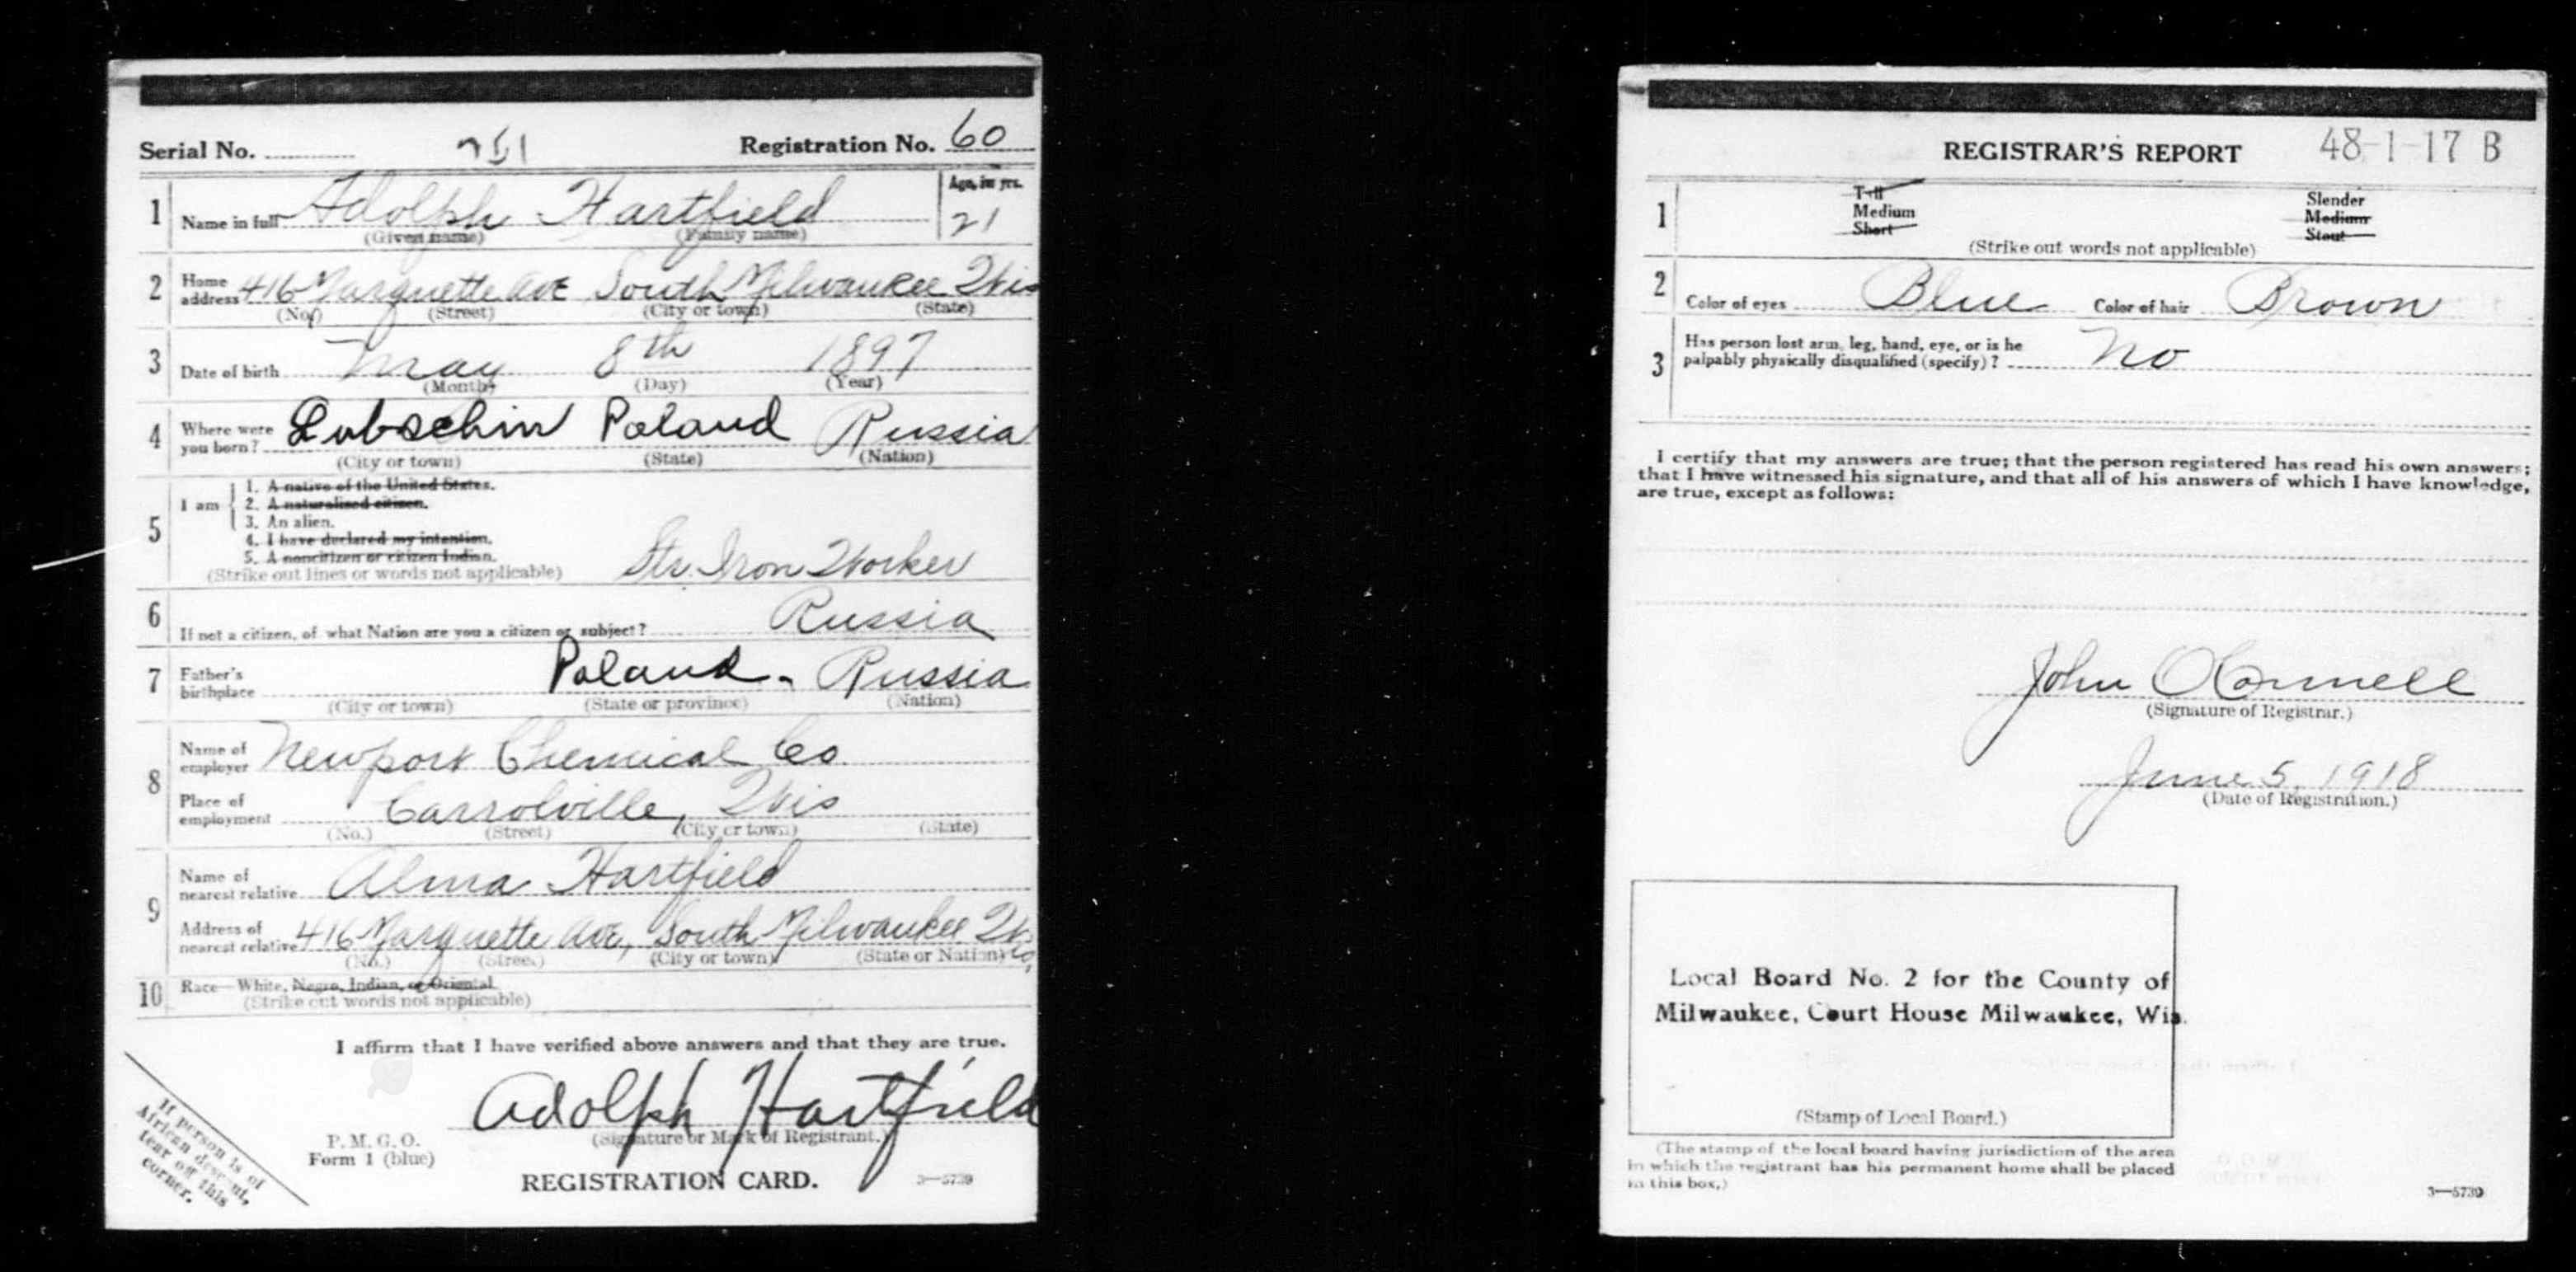 Serial No. 751 Registration No. 60
1 Name in full Adolph Hartfield Age, in yrs. 21
(Given name) (Family name)
2 Home address 416 Marquette Ave South Milwaukee Wis
(No.) (Street) (City or town) (State)
3 Date of birth May 8th 1897
(Month) (Day) (Year)
4 Where were you born? Lubschin Poland Russia
(City or town) (State) (Nation)
5 I am
1. A native of the United States.
2. A naturalized citizen.
3. An alien.
4. I have declared my intention.
5. A noncitizen or citizen Indian.
(Strike out lines or words not applicable) Str. Iron Worker
6 If not a citizen, of what Nation are you a citizen or subject? Russia
7 Father's birthplace Poland - Russia
(City or town) (State or province) (Nation)
8 Name of employer Newport Chemical Co
Place of employment Carrolville, Wis
(No.) (Street) (City or town) (State)
9 Name of nearest relative Alma Hartfield
Address of nearest relative 416 Marquette Ave, South Milwaukee Wis,
(No.) (Street) (City or town) (State or Nation)
10 Race—White, Negro, Indian, or Oriental
(Strike out words not applicable)
I affirm that I have verified above answers and that they are true.
Adolph Hartfield
(Signature or Mark of Registrant.)
P. M. G. O.
Form 1 (blue)
REGISTRATION CARD. 3—5739
If person is of
African descent,
tear off this
corner.
REGISTRAR'S REPORT 48-1-17 B
1 Tall Slender
Medium Medium
Short Stout
(Strike out words not applicable)
2 Color of eyes Blue Color of hair Brown
3 Has person lost arm, leg, hand, eye, or is he
palpably physically disqualified (specify)? No
I certify that my answers are true; that the person registered has read his own answers;
that I have witnessed his signature, and that all of his answers of which I have knowledge,
are true, except as follows:
John OConnell
(Signature of Registrar.)
June 5, 1918
(Date of Registration.)
Local Board No. 2 for the County of
Milwaukee, Court House Milwaukee, Wis.
(Stamp of Local Board.)
(The stamp of the local board having jurisdiction of the area
in which the registrant has his permanent home shall be placed
in this box.)
3—5739